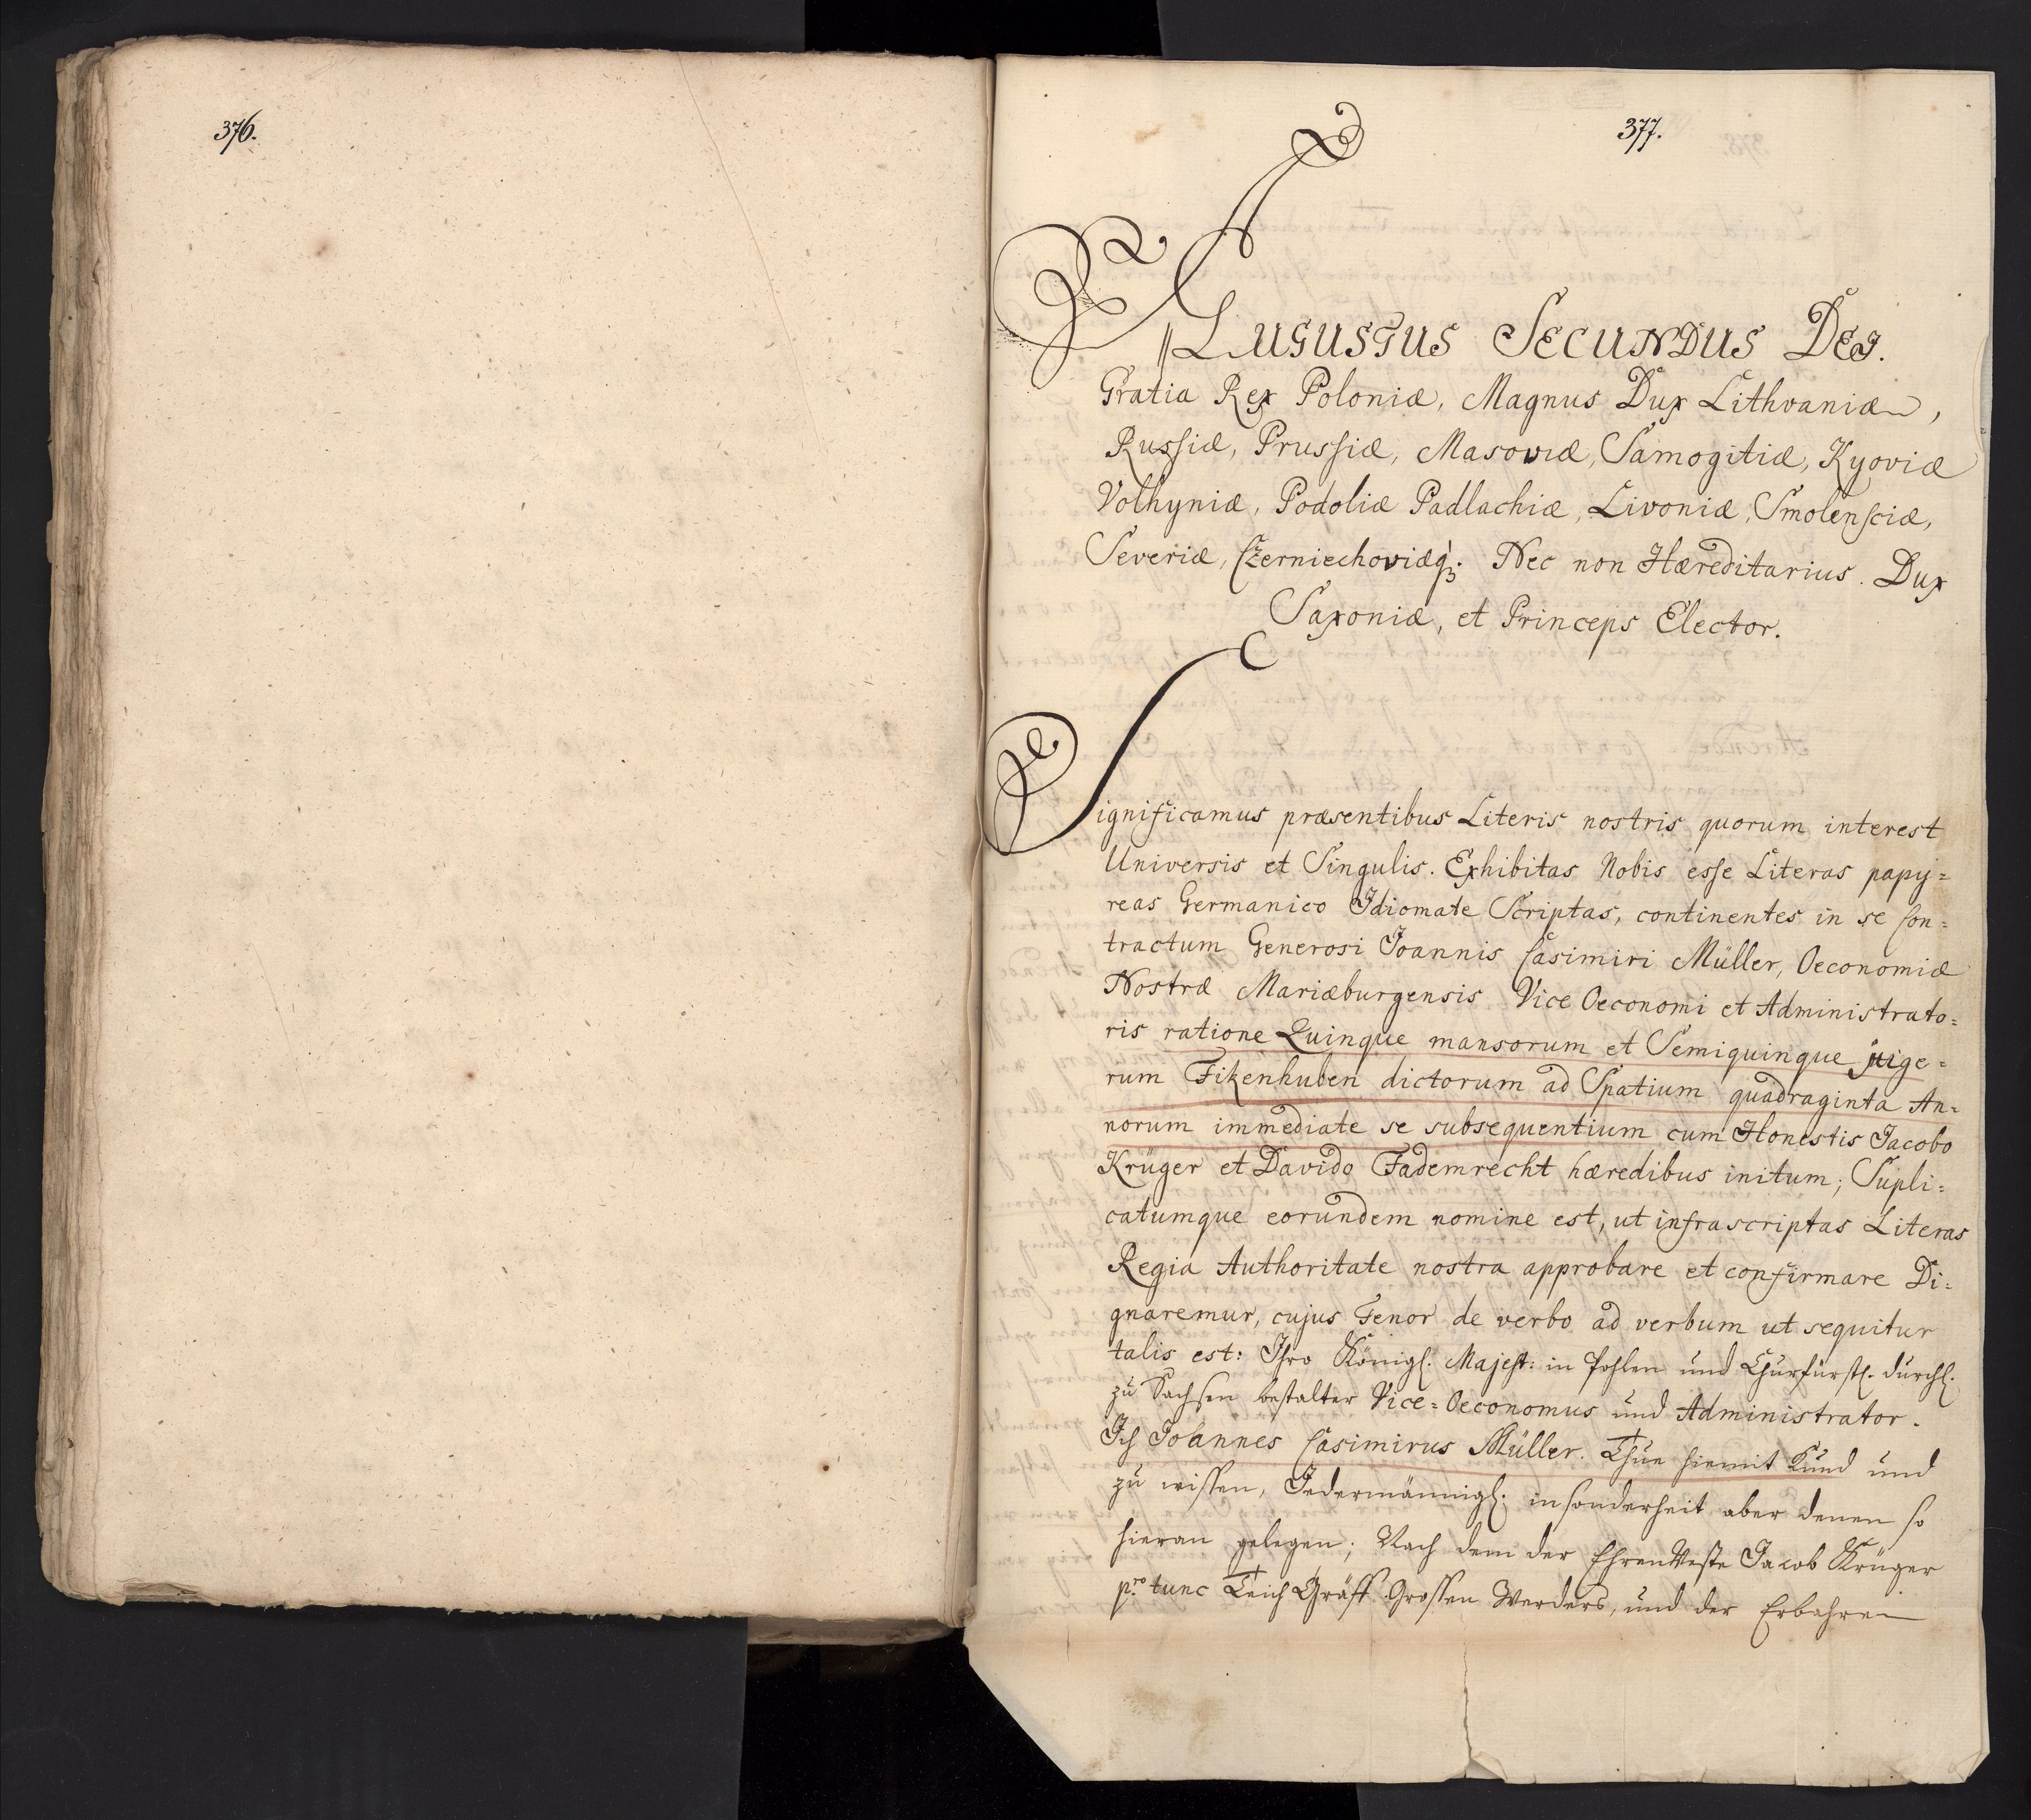 376.
377.
AUGUSTUS SECUNDUS DEI.
Gratia Rex Poloniæ, Magnus Dux Lithvaniæ,
Russiæ, Prussiæ, Masoviæ, Samogitiæ, Kyoviæ
Volhyniæ, Podoliæ Padlachiæ, Livoniæ, Smolensciæ,
Severiæ, Czerniechoviæq;. Nec non Hæreditarius. Dux
Saxoniæ, et Princeps Elector.
Significamus præsentibus Literis nostris quorum interest
Universis et Singulis. Exhibitas Nobis esse Literas papy=
reas Germanico Idiomate Scriptas, continentes in se Con=
tractum Generosi Joannis Casimiri Müller, Oeconomiæ
Nostræ Mariæburgensis Vice Oeconomi et Administrato=
ris ratione Quinque mansorum et Semiquinque juge=
rum Fikenhuben dictorum ad Spatium quadraginta An=
norum immediate se subsequentium cum Honestis Jacobo
Krüger et Davido Fademrecht hæredibus initum; Supli=
catumque eorundem nomine est, ut infrascriptas Literas
Regia Authoritate nostra approbare et confirmare Di=
gnaremur, cujus Tenor de verbo ad verbum ut sequitur
talis est: Ihro Königl. Majest: in Pohlen und Churfürstl. Durchl.
zu Sachsen bestalter Vice=Oeconomus und Administrator.
Ich Joannes Casimirus Müller. Thue hiemit Kund und
zu wissen, Jedermännigl. insonderheit aber denen so
hieran gelegen; Nach dem der EhrenVeste Jacob Krüger
pro tunc Teich Gräff Grossen Werders, und der Erbahren